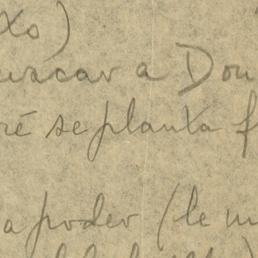 xo)
uacar a Dou
ré se planta f
a poder (le m